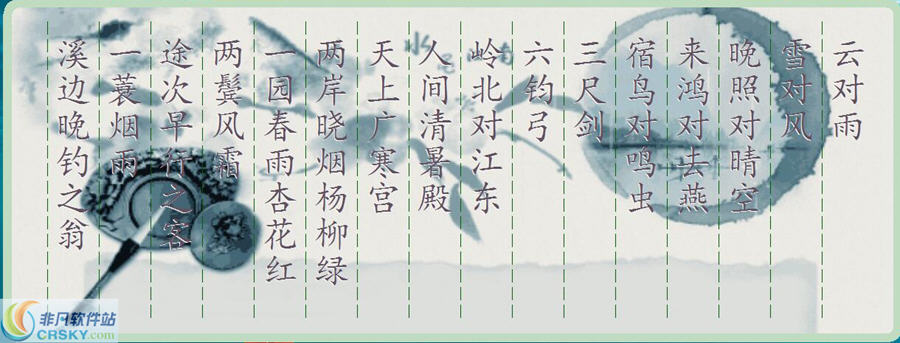 云对雨
雪对风
晚照对晴空
来鸿对去燕
宿鸟对鸣虫
三尺剑
六钧弓
岭北对江东
人间清暑殿
天上广寒宫
两岸晓烟杨柳绿
一园春雨杏花红
两鬓风霜
途次早行之客
一蓑烟雨
溪边晚钓之翁
非凡软件站
CRSKY.com